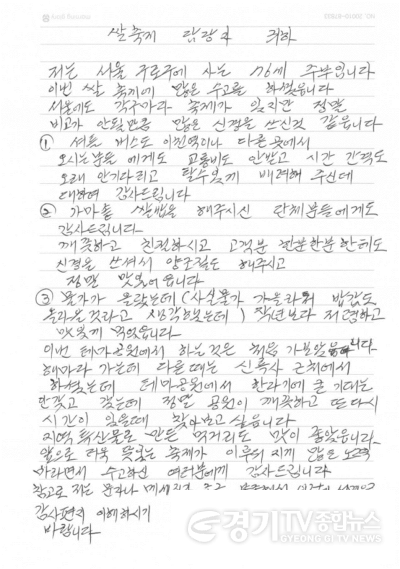 쌀축제 담당자 귀하
저는 서울 구로구에 사는 76세 주부입니다
이번 쌀 축제에 많은 수고를 하셨습니다
서울에도 각구마다 축제가 있지만 정말
비교가 안될만큼 많은 신경을 쓰신것 같습니다
① 셔틀 버스도 이천역이나 다른곳에서
오시는분들에게도 교통비도 안받고 시간 간격도
오래 안기다리고 탈수있게 배려해 주신데
대하여 감사드립니다
② 가마솥 쌀밥을 해주시신 단체분들에게도
감사드립니다
깨끗하고 친절하시고 고객분 한분한분한테도
신경을 쓰셔서 양조절도 해주시고
정말 맛있어읍니다
③ 물가가 올랐는데 (사실물가 가올라 밥값도
올라온것라고 생각했는데) 작년보다 저렴하고
맛있게 먹었읍니다
이번 테마공원에서 하는것은 처음 가보았읍니다
해마다 가는데 다른때는 설봉사 근처에서
하셨는데 테마공원에서 한다기에 큰 기대는
안갖고 갔는데 정말 공원이 깨끗하고 또다시
시간이 있을때 찾아보고 싶읍니다
지역 특산물로 만든 먹거리도 많이 좋았읍니다
앞으로 더욱 뜻있는 축제가 이루어지게 많은 노력
바라면서 수고하신 여러분에게 감사드립니다
참고로 저는
감사편지 이해하시기
바랍니다
경기TV종합뉴스
GYEONG GI TV NEWS